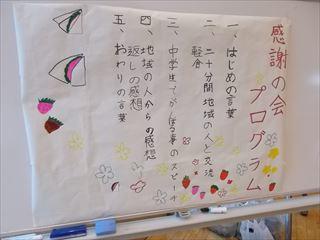 感謝の会
プログラム
一、はじめの言葉
二、二十分間地域の人と交流
軽食
三、中学生でがんばる事のスピーチ
四、地域の人からの感想
返しの感想
五、おわりの言葉